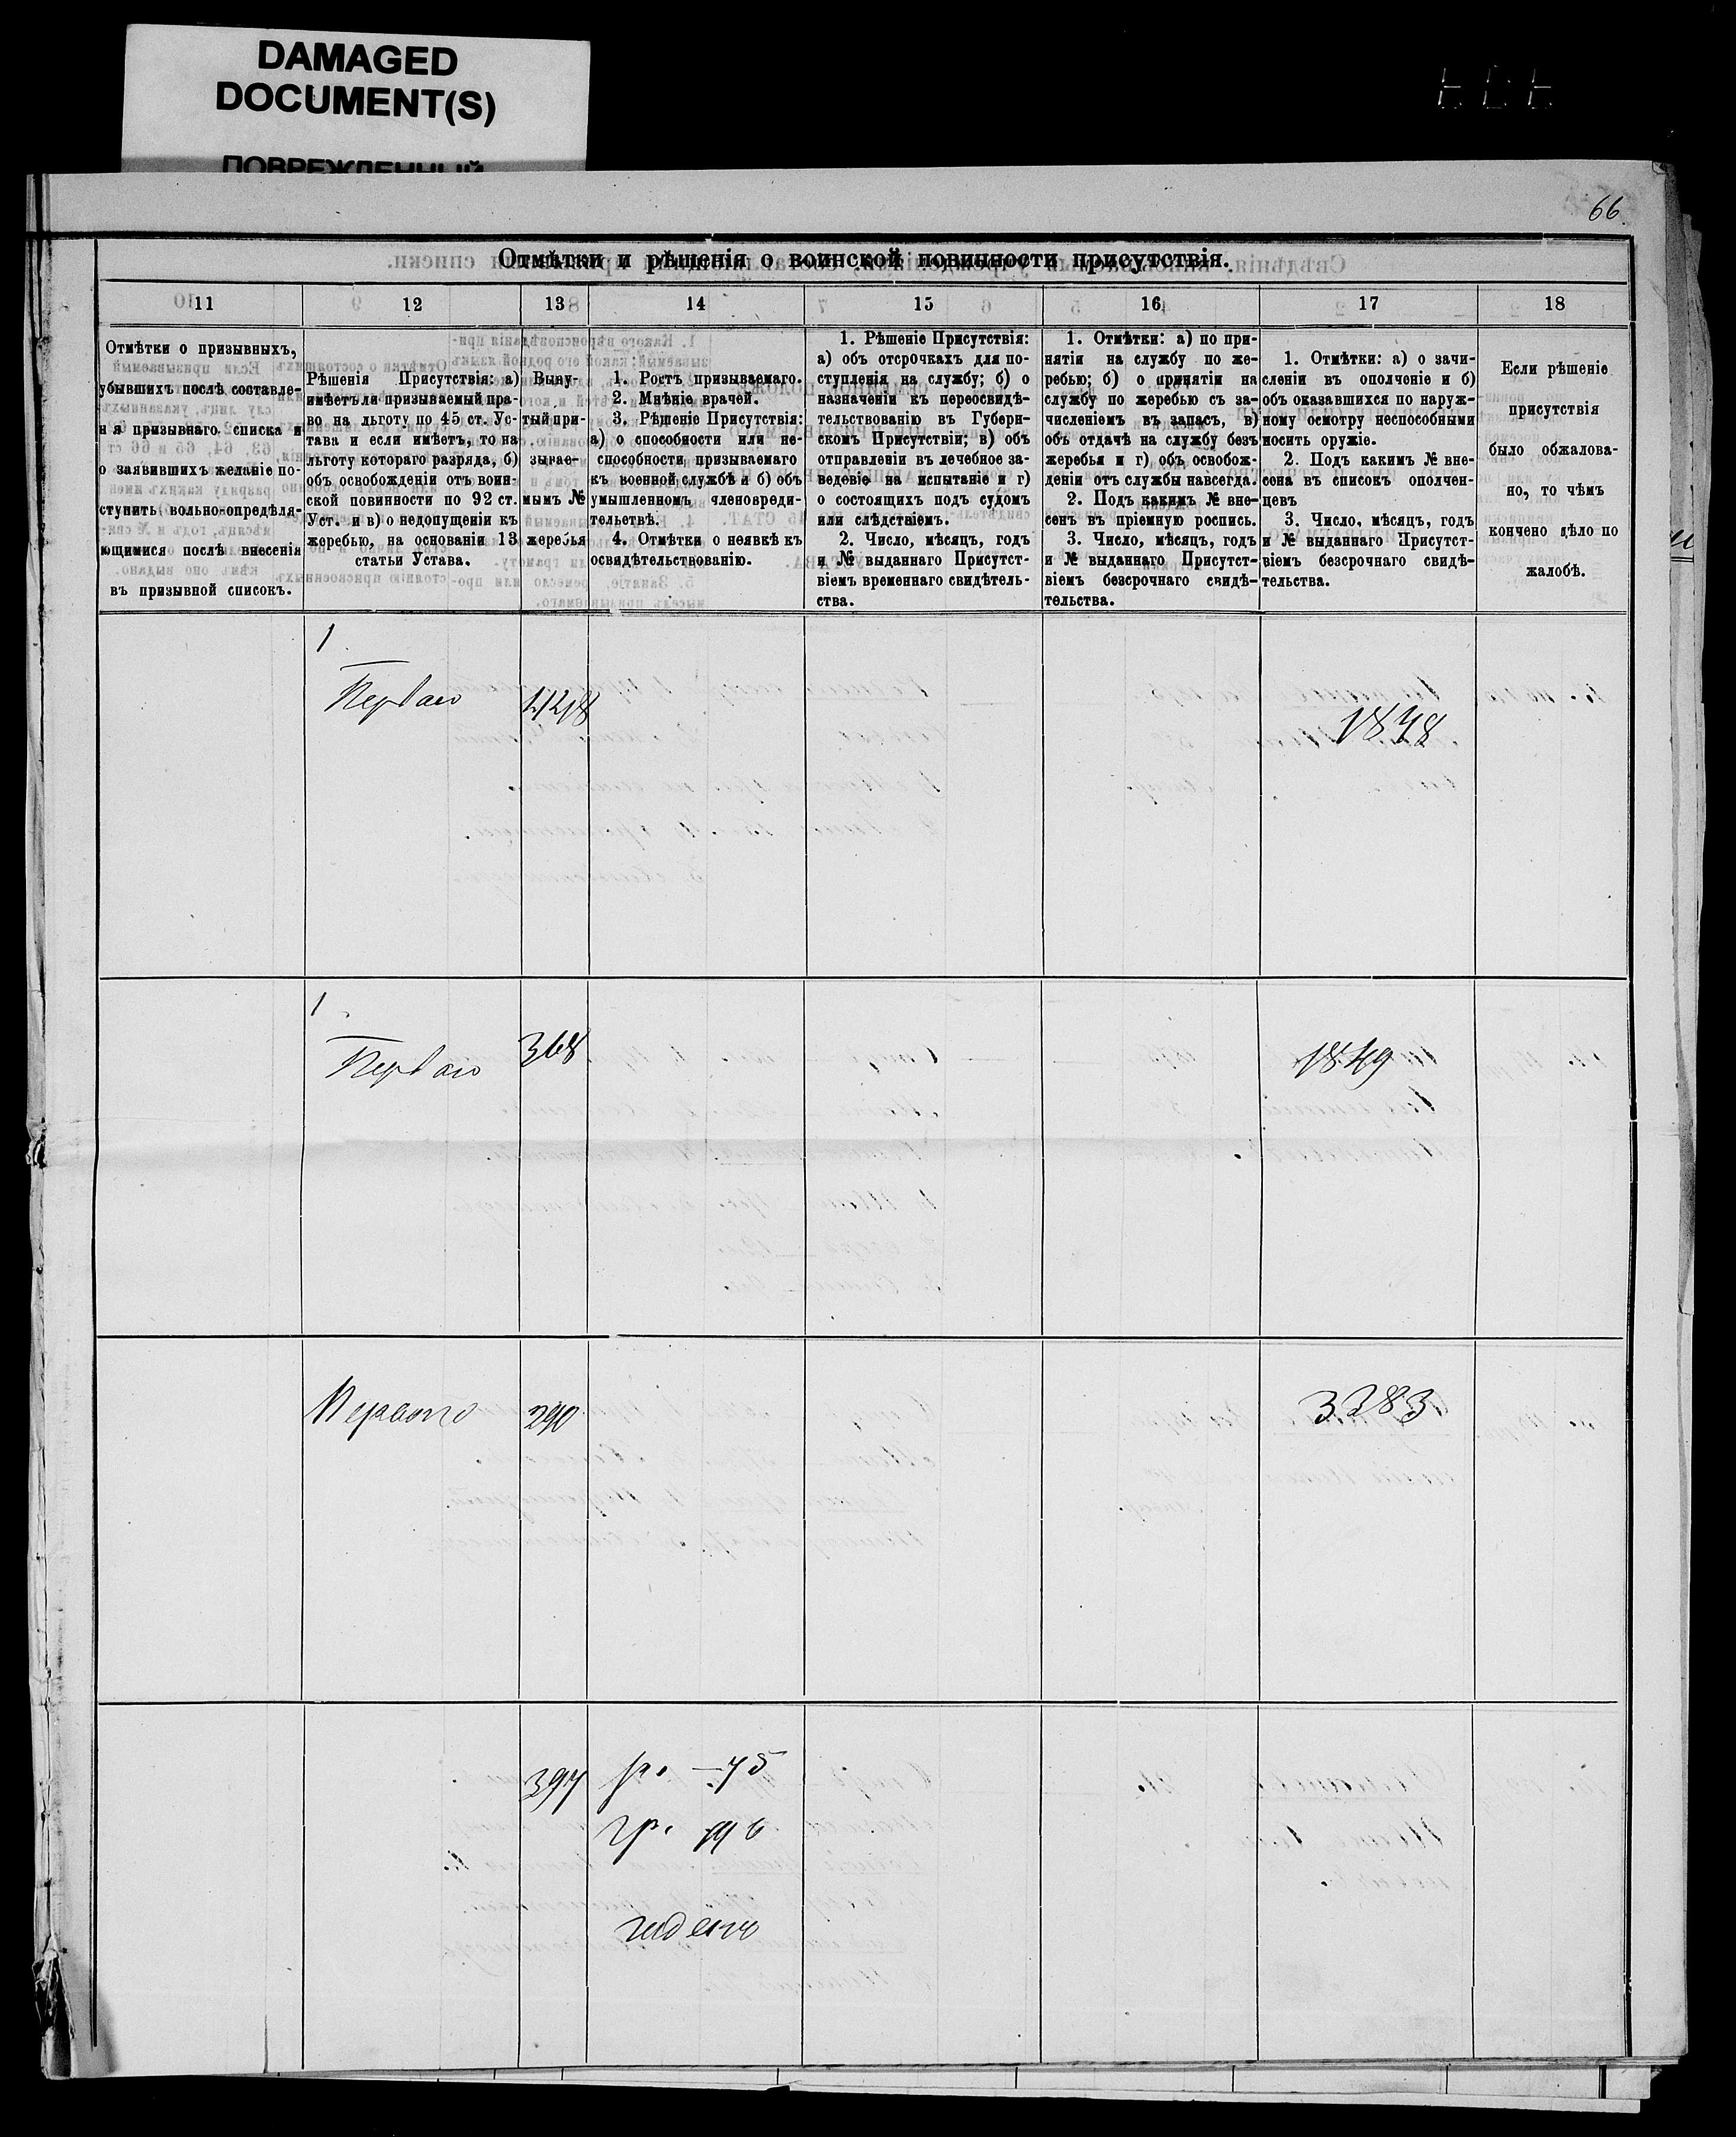 DAMAGED
DOCUMENT(S)
ПОВРЕЖДЕННЫЙ
66.
Отмѣтки и рѣшенія о воинской повинности присутствія.
11
12
13
14
15
16
17
18
Отмѣтки о призывныхъ,
убывшихъ послѣ составле-
нія призывнаго списка и
о заявившихъ желаніе по-
ступить вольно-опредѣля-
ющимися послѣ внесенія
въ призывной списокъ.
Рѣшенія Присутствія: а)
имѣетъ ли призываемый пра-
во на льготу по 45 ст. Ус-
тава и если имѣетъ, то на
льготу котораго разряда, б)
объ освобожденіи отъ воин-
ской повинности по 92 ст.
Уст. и в) о недопущеніи къ
жеребью, на основаніи 13
статьи Устава.
Выну-
тый при-
зывае-
мымъ №
жеребья
1. Ростъ призываемаго.
2. Мнѣніе врачей.
3. Рѣшеніе Присутствія:
а) о способности или не-
способности призываемаго
къ военной службѣ и б) объ
умышленномъ членовреди-
тельетвѣ.
4. Отмѣтки о неявкѣ къ
освидѣтельствованію.
1. Рѣшеніе Присутствія:
а) объ отсрочкахъ для по-
ступленія на службу; б) о
назначеніи къ переосвидѣ-
тельствованію въ Губерн-
скомъ Присутствіи; в) объ
отправленіи въ лечебное за-
веденіе на испытаніе и г)
о состоящихъ подъ судомъ
или слѣдствіемъ.
2. Число, мѣсяцъ, годъ
и № выданнаго Присутст-
віемъ временнаго свидѣтель-
ства.
1. Отмѣтки: а) по при-
нятіи на службу по же-
ребью; б) о принятіи на
службу по жеребью съ за-
численіемъ въ запасъ, в)
объ отдачѣ на службу безъ
жеребья и г) объ освобож-
деніи отъ службы навсегда.
2. Подъ какимъ № вне-
сенъ въ пріемную роспись.
3. Число, мѣсяцъ, годъ
и № выданнаго Присутст-
віемъ безсрочнаго свидѣ-
тельства.
1. Отмѣтки: а) о зачи-
сленіи въ ополченіе и б)
объ оказавшихся по наруж-
ному осмотру неспособными
носить оружіе.
2. Подъ какимъ № вне-
сена въ списокъ ополчен-
цевъ
3. Число, мѣсяцъ, годъ
и № выданнаго Присутст-
віемъ безсрочнаго свидѣ-
тельства.
Если рѣшеніе
присутствія
было обжалова-
но, то чѣмъ
кончено дѣло по
жалобѣ.
1
Перваго
1
Перваго
368
1849
Перваго
290
3283
397
годенъ